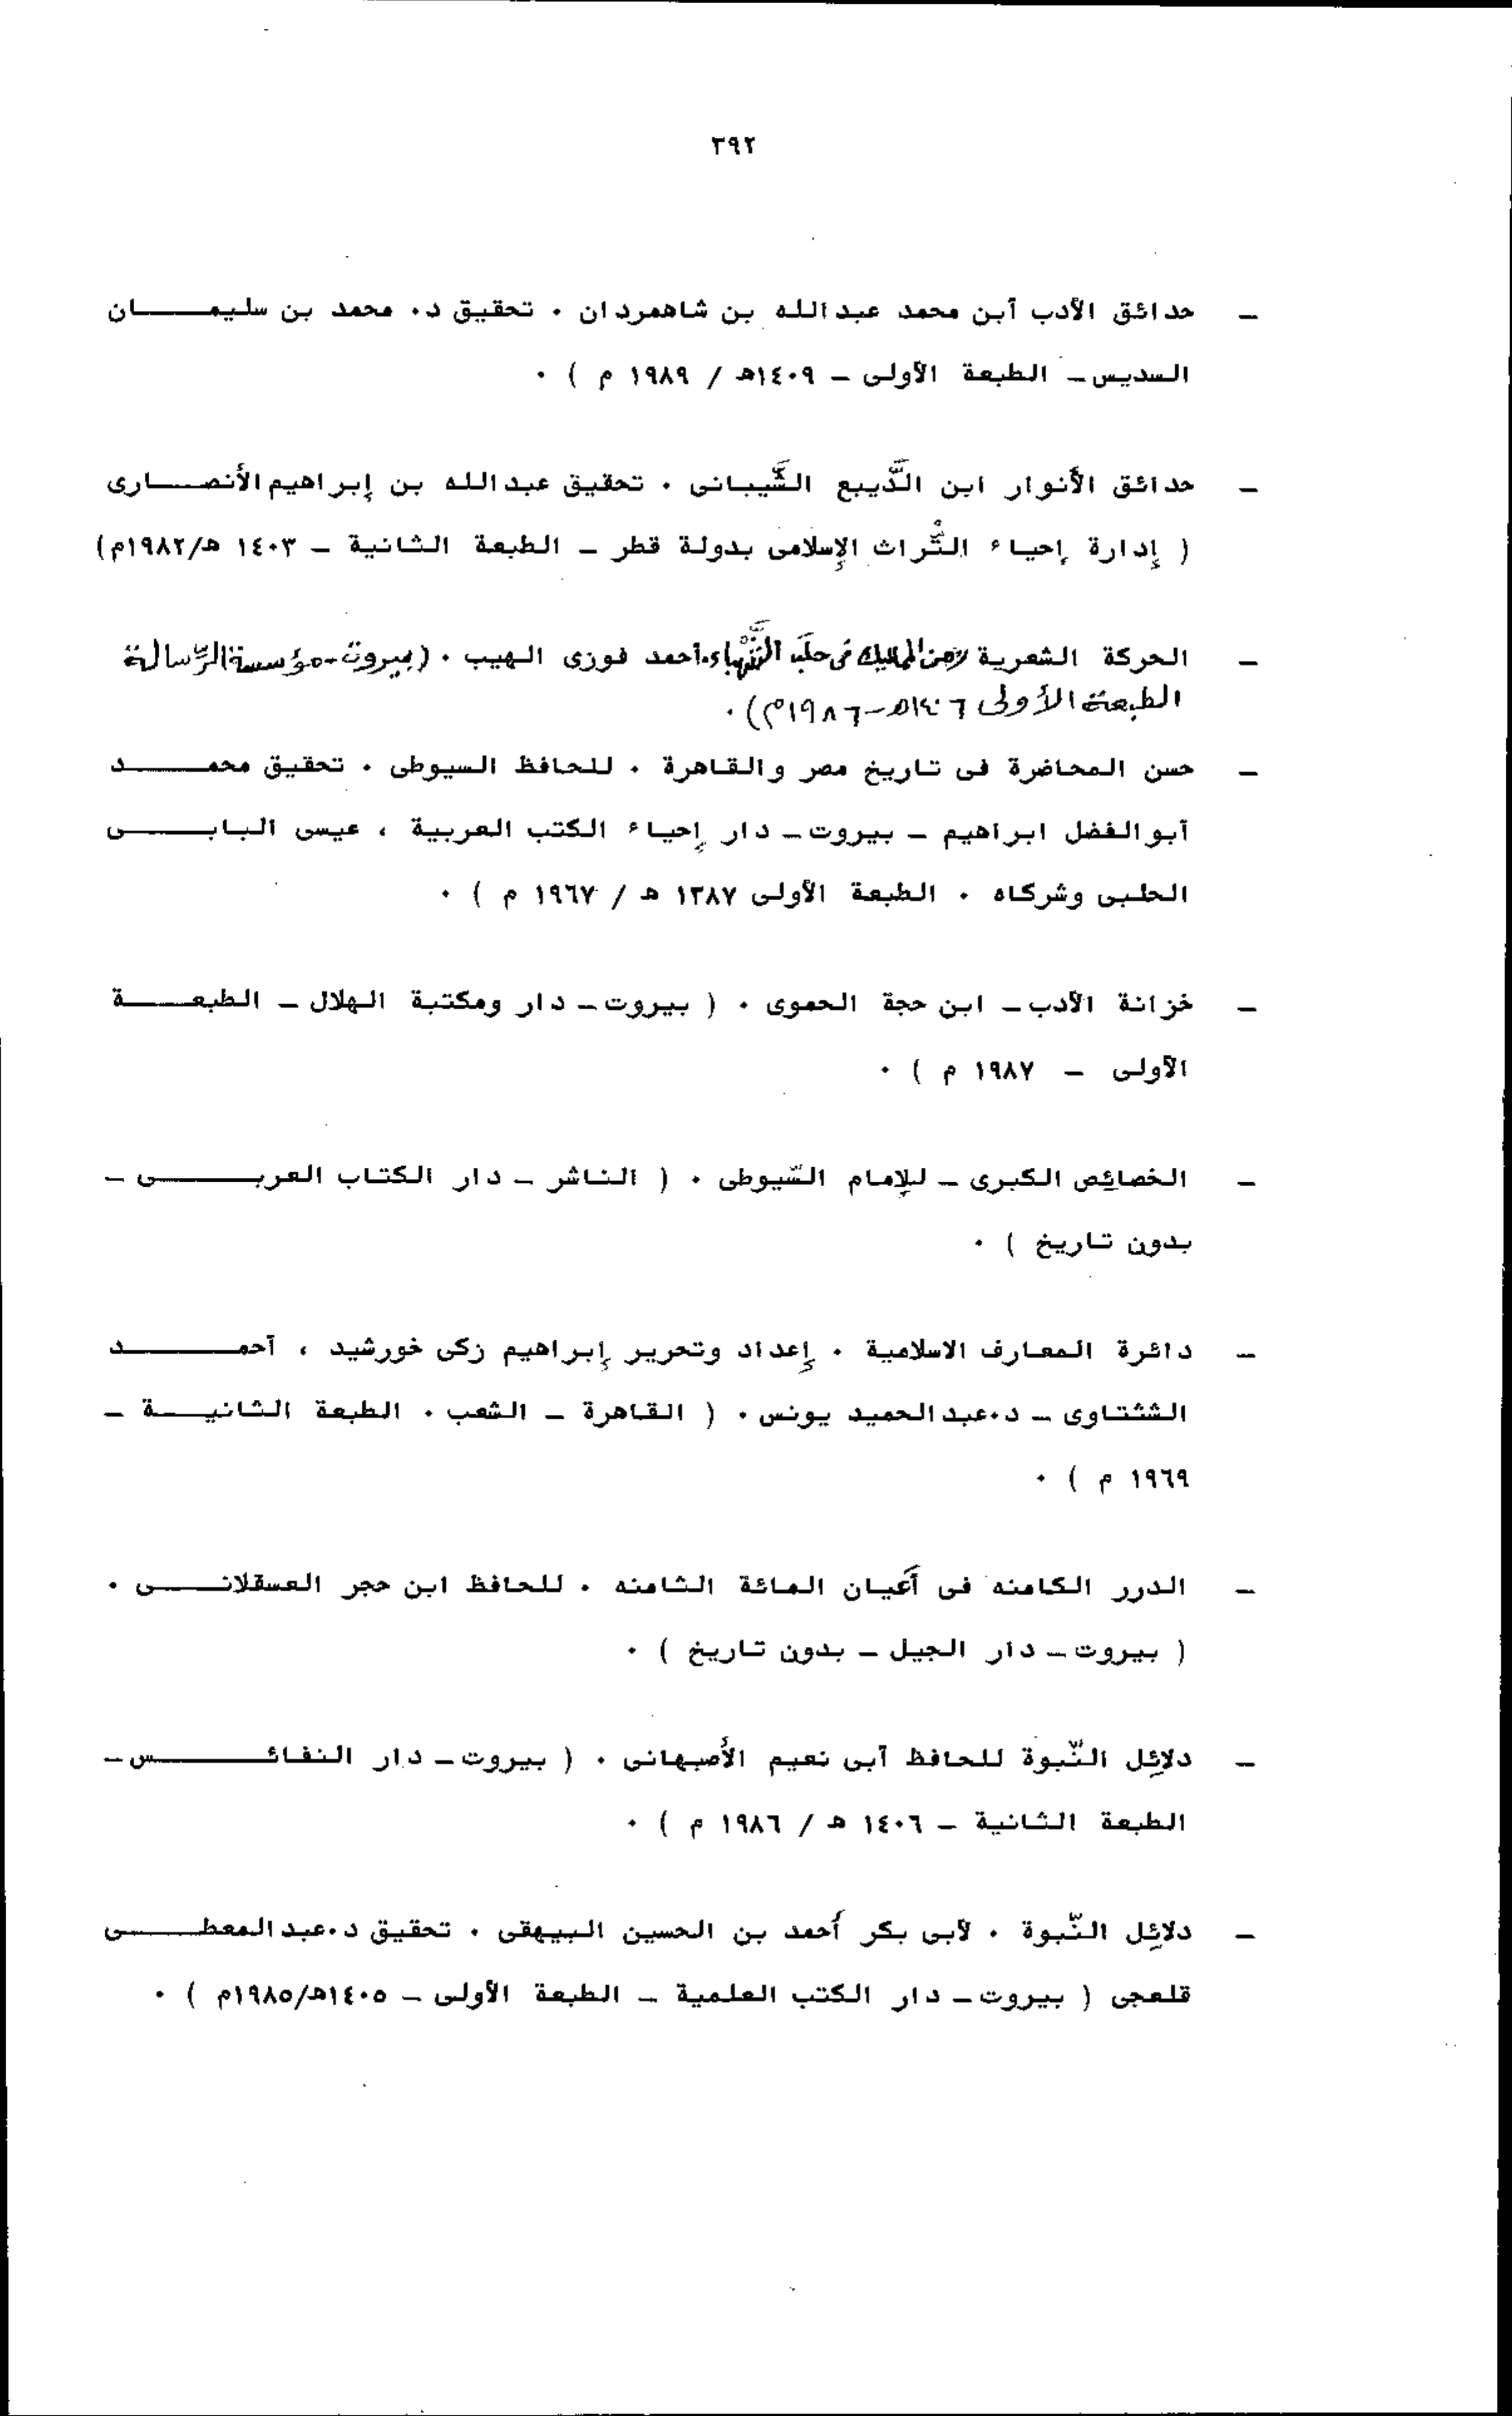 ٣٩٢
— حدائق الأدب أبن محمد عبدالله بن شاهمردان ٠ تحقيق د٠ محمد بن سليمـــان
السديس ــ الطبعة الأولى ــ ١٤٠٩هـ / ١٩٨٩ م ) ٠
— حدائق الأنوار ابن الدَّيبع الشَّيبانى ٠ تحقيق عبدالله بن إبراهيم الأنصــارى
( إدارة إحياء التُّراث الإسلامى بدولة قطر ــ الطبعة الثانية ــ ١٤٠٣ هـ/١٩٨٢م)
— الحركة الشعرية زمن المماليك فى حلب الشَّهباء٠أحمد فوزى الهيب ٠ (بيروت-مؤسسة الرّسالة
الطبعة الأولى ١٤٠٦هـ-١٩٨٦م) ٠
— حسن المحاضرة فى تاريخ مصر والقاهرة ٠ للحافظ السيوطى ٠ تحقيق محمـــد
أبوالفضل ابراهيم ــ بيروت ــ دار إحياء الكتب العربية ، عيسى البابـــى
الحلبى وشركاه ٠ الطبعة الأولى ١٣٨٧ هـ / ١٩٦٧ م ) ٠
— خزانة الأدب ــ ابن حجة الحموى ٠ ( بيروت ــ دار ومكتبة الهلال ــ الطبعـــة
الأولى ــ ١٩٨٧ م ) ٠
— الخصائص الكبرى ــ للإمام السّيوطى ٠ ( الناشر ــ دار الكتاب العربـــى ــ
بدون تاريخ ) ٠
— دائرة المعارف الاسلامية ٠ إعداد وتحرير إبراهيم زكى خورشيد ، أحمـــد
الشنتاوى ــ د٠عبدالحميد يونس ٠ ( القاهرة ــ الشعب ٠ الطبعة الثانيــة ــ
١٩٦٩ م ) ٠
— الدرر الكامنه فى أَعيان المائة الثامنه ٠ للحافظ ابن حجر العسقلانـــى ٠
( بيروت ــ دار الجيل ــ بدون تاريخ ) ٠
— دلائل النّبوة للحافظ أبى نعيم الأصبهانى ٠ ( بيروت ــ دار النفائـــس ــ
الطبعة الثانية ــ ١٤٠٦ هـ / ١٩٨٦ م ) ٠
— دلائل النّبوة ٠ لأبى بكر أحمد بن الحسين البيهقى ٠ تحقيق د٠عبدالمعطـــى
قلعجى ( بيروت ــ دار الكتب العلمية ــ الطبعة الأولى ــ ١٤٠٥هـ/١٩٨٥م ) ٠